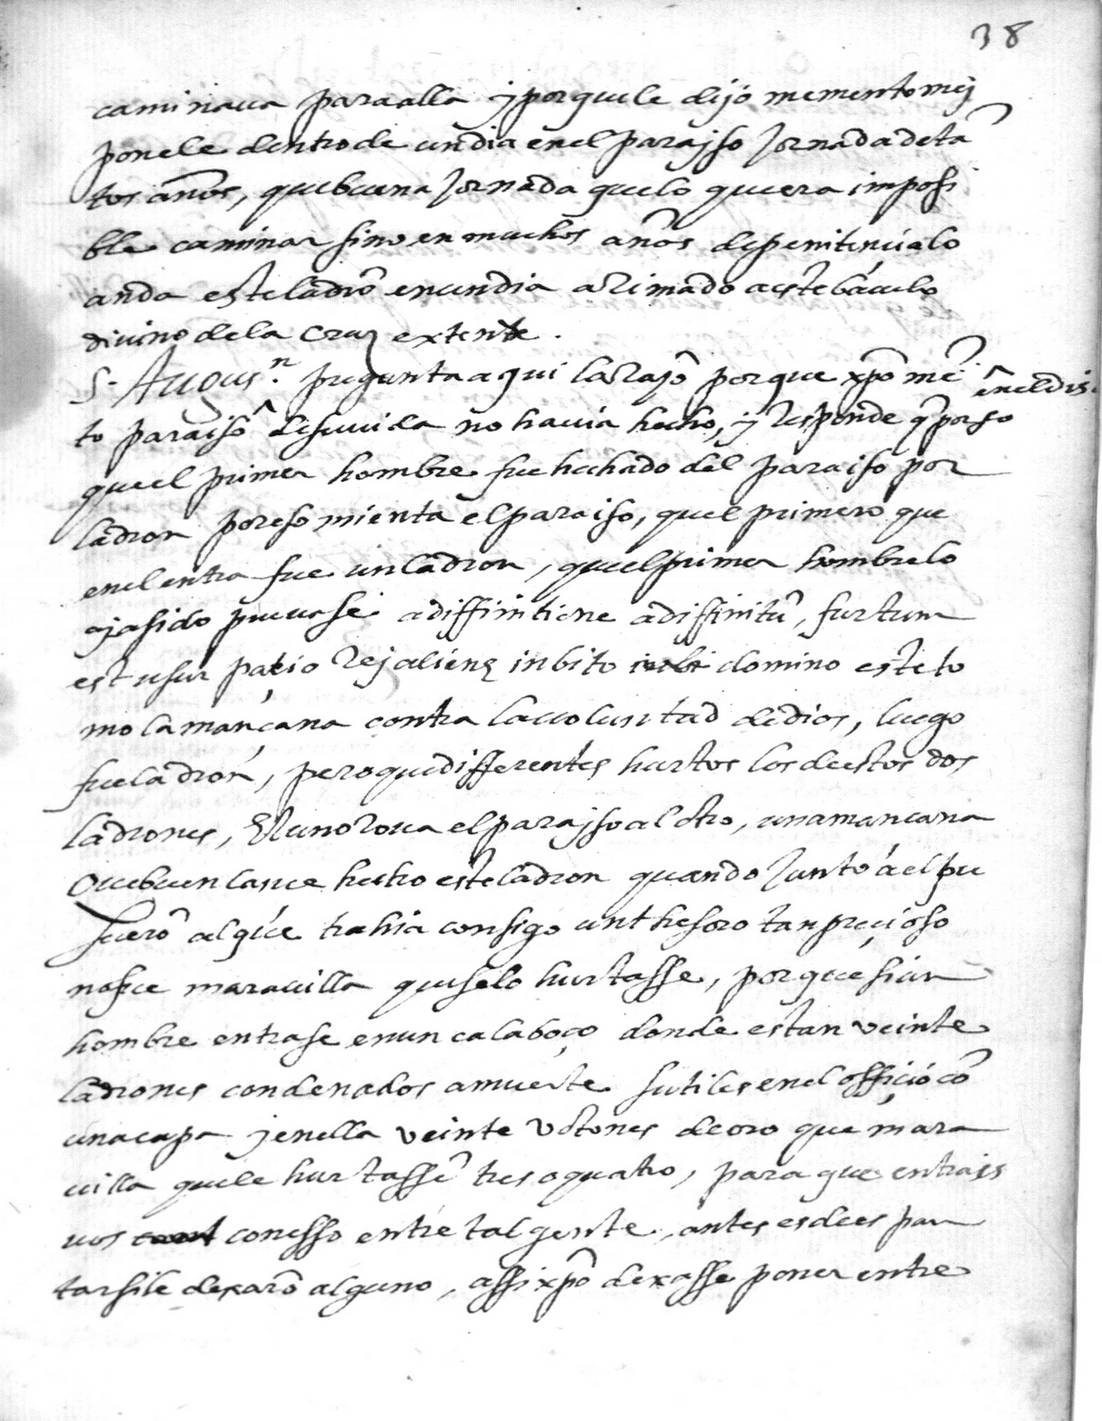 38
caminaua para alla y porque le dijo memento mej
ponele dentro de un dia en el parajso jornada de tã
tos años, que buena jornada que lo que era imposi
ble caminar sino en muchos años de penitencia lo
anda este ladrõ en un dia arimado a este báculo
diuino de la Cruz extente.
S. Augusn. pregunta aqui la rajõ porque xpõ mẽ
to paraisõ ^ des uida no hauia hecho, y responde q̃ por so
^ en el dis
que el primer hombre fue hechado del paraiso por
ladron por eso mienta el paraiso, quel primero que
en el entra fue un ladron, que el primer hombre lo
aja sido prueuase a diffinitione ad iffinitũ, furtum
est usurpatio Rej alienę inbito domino este to
mo la mançana contra la uoluntad de dios, luego
fue ladron, pero que differentes hurtos los de estos dos
ladrones, El uno roua el parajso al otro, una mancana
O que buen lance hecho este ladron quando junto á el pu
sierõ al q̃ trahia consigo un thesoro tan preçioso
nofue marauilla que se lo hurtasse, porque si ún
hombre entrase en un calaboço donde estan veinte
ladrones condenados a muerte sutiles en el officio cõ
una capa y en ella veinte votones de oro que mara
uilla que le hurtassẽ tres o quatro, para que entrais
uos con esso entre tal gente, antes es de espan
tar si le dexarõ alguno, assi xpõ dexasse poner entre